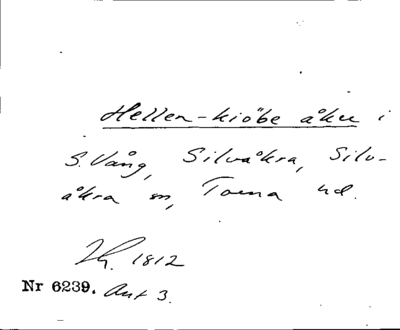 Hellen-kiöbe åker i
S. Vång, Silvåkra, Silv-
åkra sn, Torna hd.
1812
Nr 6239. Ant 3.